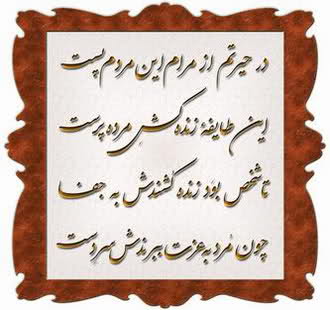 در حیرتم از مرام این مردم پست
این طایفهٔ زنده کشِ مرده پرست
تا شخص بوَد زنده کشندش به جفا
چون مُرد به عزت ببرندش سر دست